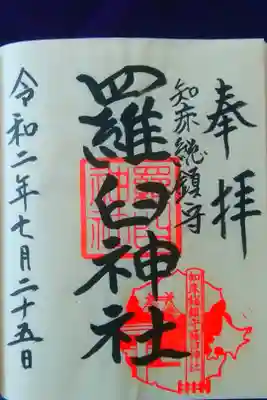 奉拝
知床総鎮守
羅臼神社
令和二年七月二十五日
羅臼神社